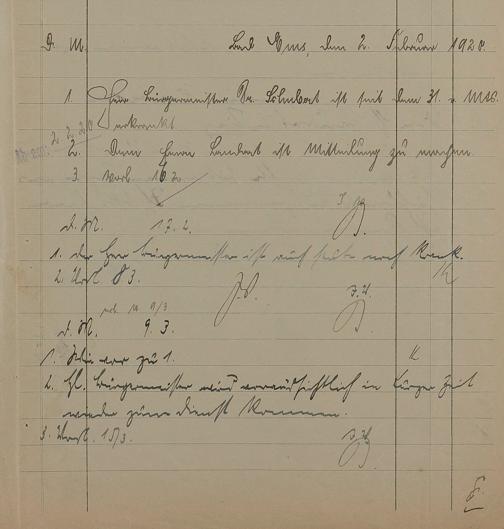 D. M. Bad Ems, den 2. Februar 1920.
1. Herr Bürgermeister Dr. Schubert ist seit dem 31. v. Mts.
erkrankt
2.2.20
2. Dem Herrn Landrat ist Mitteilung zu machen
3. Worl 16 2.
d. M. 17. 2.
1. der Herr Bürgermeister ist auch heute noch krank.
2. Worl 8 3.
J.V.
n. 9/3
d. M. 9. 3.
1. Wie vor zu 1.
2. H. Bürgermeister wird voraussichtlich in kurzer Zeit
wieder zum Dienst kommen.
3. Worl. 15/3.